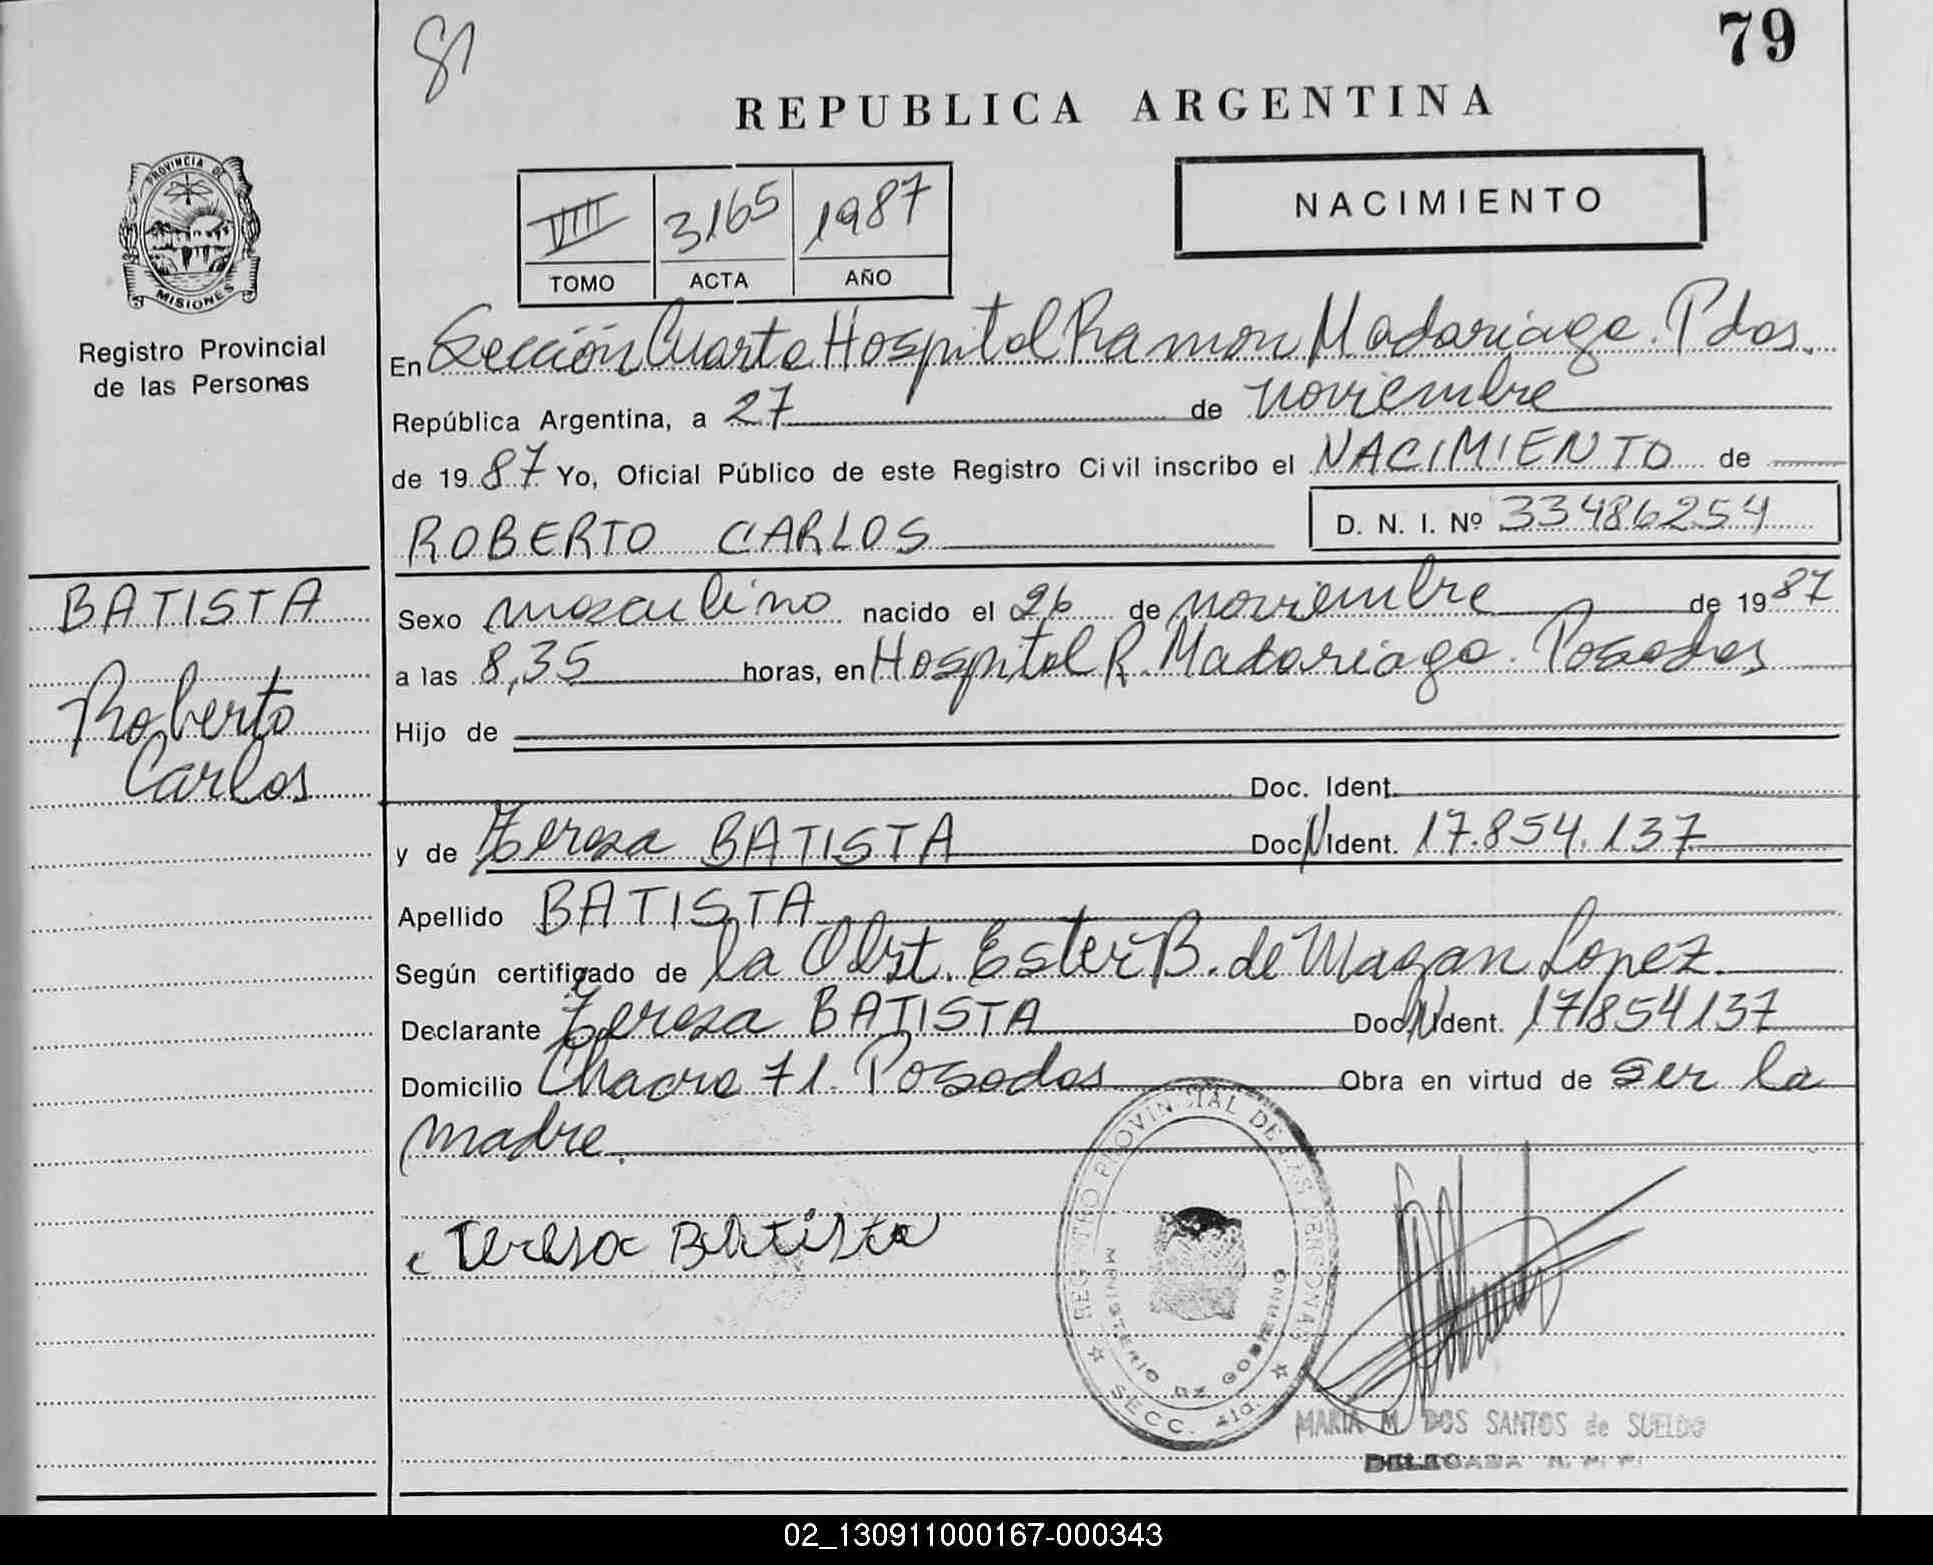 81
79
REPUBLICA ARGENTINA
VIII 3165 1987
TOMO ACTA AÑO
NACIMIENTO
PROVINCIA DE
MISIONES
Registro Provincial
de las Personas
En Sección Cuarta Hospital Ramon Madariaga. Pdas.
República Argentina, a 27 de noviembre
de 1987 Yo, Oficial Público de este Registro Civil inscribo el NACIMIENTO de
ROBERTO CARLOS D. N. I. Nº 33486254
BATISTA
Roberto
Carlos
Sexo masculino nacido el 26 de noviembre de 1987
a las 8,35 horas, en Hospital R. Madariaga. Posadas
Hijo de
Doc. Ident.
y de Teresa BATISTA Doc. N Ident. 17.854.137
Apellido BATISTA
Según certificado de la Obst. Ester B. de Magan Lopez
Declarante Teresa BATISTA Doc. N Ident. 17854137
Domicilio Chacra 71. Posadas Obra en virtud de ser la
madre.
Teresa Batista
REGISTRO PROVINCIAL DE LAS PERSONAS
MINISTERIO DE GOBIERNO
SECC. 4ta.
MARIA M. DOS SANTOS de SUELDO
DELEGADA R. P. P.
02_130911000167-000343